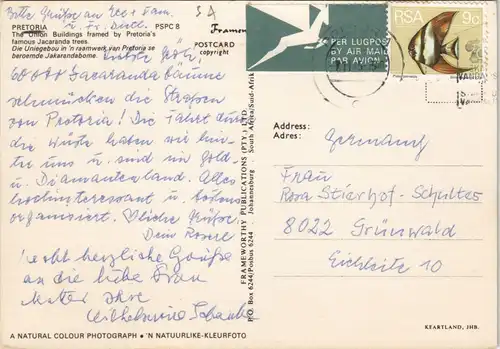 Bitte Grüße an Ecc + Fam.
u. Fr. Dietl.
PRETORIA PSPC 8
The Union Buildings framed by Pretoria's
famous Jacaranda trees.
Die Uniegebou in 'n raamwerk van Pretoria se
beroemde Jakarandabome.
60 000 Jacaranda Bäume
schmücken die Strassen
von Pretoria! Die Fahrt durch
die Wüste haben wir hin-
ter uns u. sind im Gold-
u. Diamantenland. Alles
hochinteressant u. bestens
organisiert. Herzliche Grüße
Dein
Recht herzliche Grüße
an die liebe Frau
Mutter Ihre
Wilhelmine
A NATURAL COLOUR PHOTOGRAPH • 'N NATUURLIKE-KLEURFOTO
POSTCARD
copyright
FRAMEWORTHY PUBLICATIONS (PTY.) LTD
P.O. Box 6244/Posbus 6244 Johannesburg South Africa/Suid-Afrika
PER LUGPOS
BY AIR MAIL
PAR AVION
RSA 9c
Address:
Adres:
Germany
Frau
Rosa Stierhof-Schultes
8022 Grünwald
Eichleite 10
KEARTLAND, JHB.